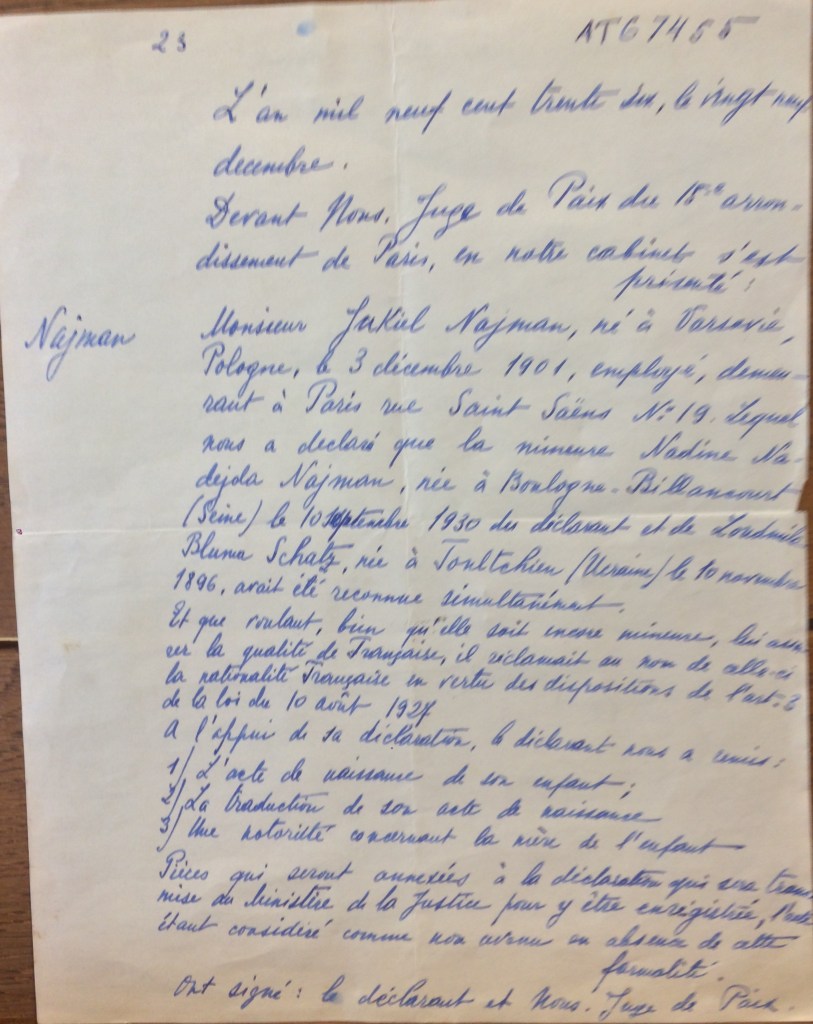 23
AT67455
L'an mil neuf cent trente six, le vingt neuf
decembre.
Devant Nous. Juge de Paix du 18me arron-
dissement de Paris, en notre cabinet s'est
présenté:
Najman
Monsieur Jukiel Najman, né à Varsovie,
Pologne, le 3 décembre 1901, employé, demeu-
rant à Paris rue Saint Saëns No 19. Lequel
nous a declaré que la mineure Nadine Na-
dejda Najman, née à Boulogne-Billancourt
(Seine) le 10 septembre 1930 du déclarant et de Loudmila
Bluma Schatz, née à Toultchien (Ucraine) le 10 novembre
1896, avait été reconnue simultanément.
Et que voulant, bien qu'elle soit encore mineure, lui assu-
rer la qualité de Française, il réclamait au nom de celle-ci
la nationalité Française en vertu des dispositions de l'art. 3
de la loi du 10 août 1927
A l'appui de sa déclaration, le déclarant nous a remis:
1) L'acte de naissance de son enfant;
2) La traduction de son acte de naissance
3) Une notoriété concernant la mère de l'enfant
Pièces qui seront annexées à la déclaration qui sera trans-
mise au Ministère de la Justice pour y être enregistrée, l'acte
étant considéré comme non avenu en absence de cette
formalité.
Ont signé: le déclarant et Nous. Juge de Paix.